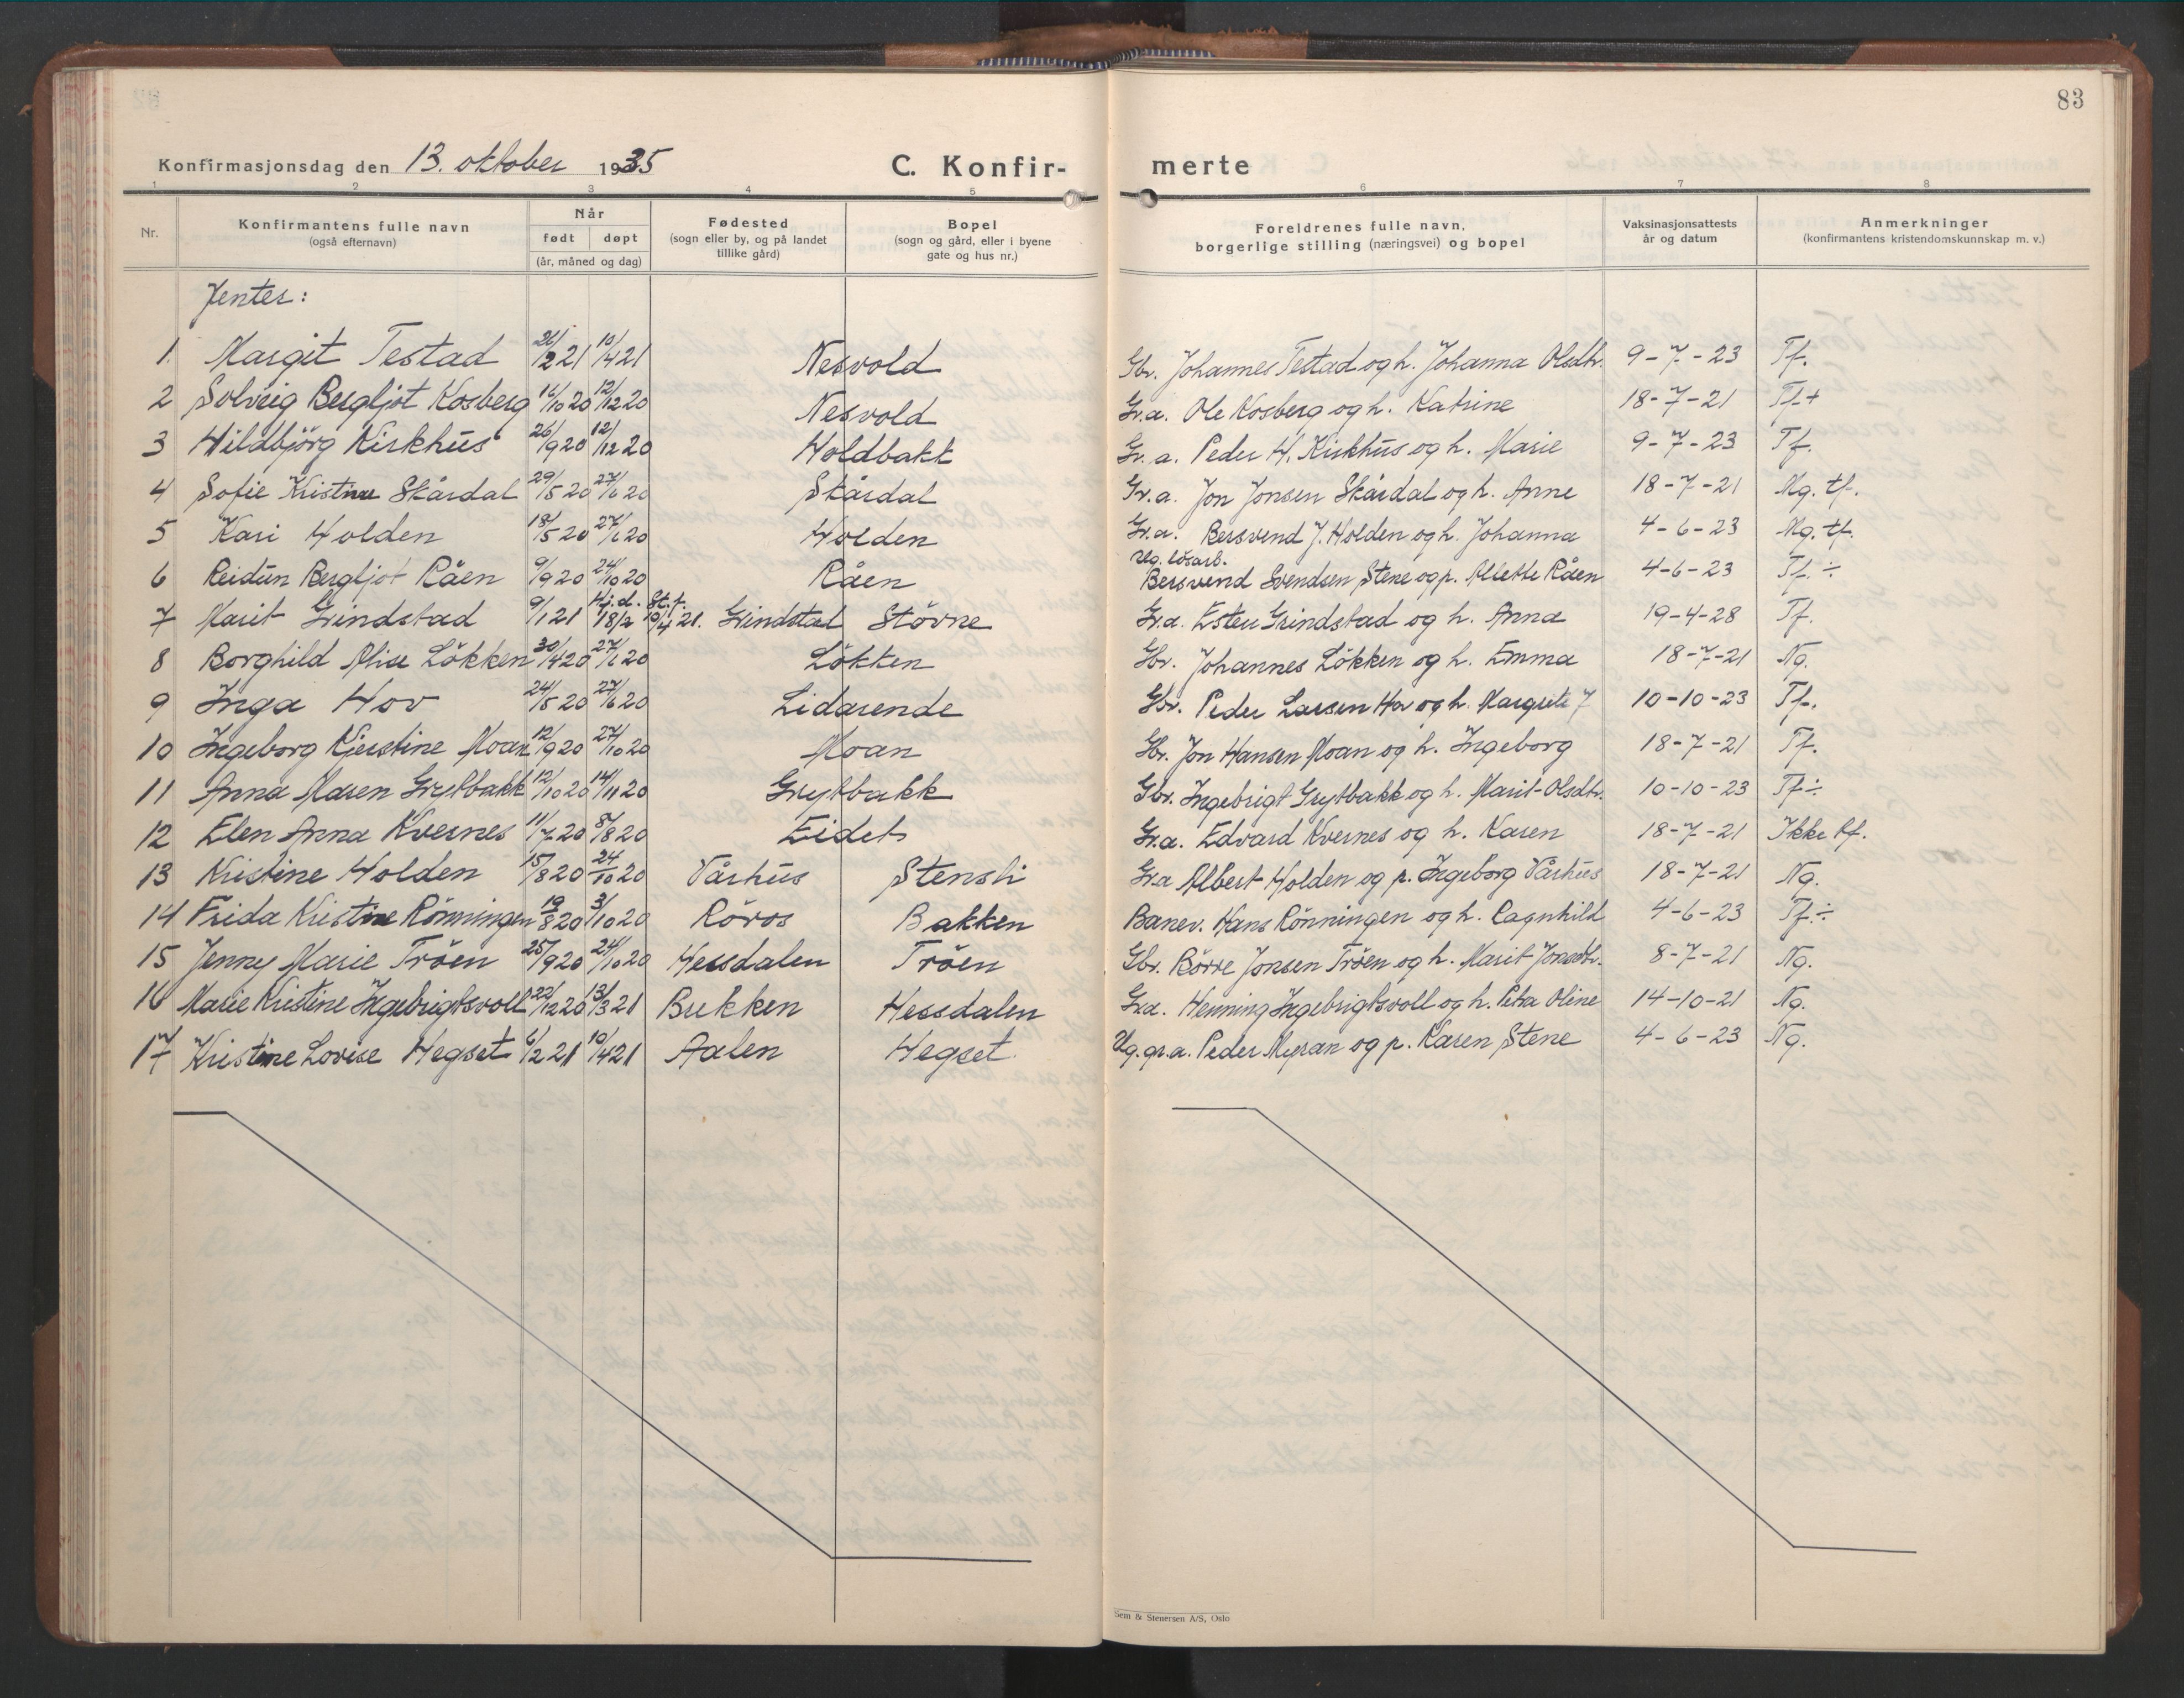 83
Konfirmasjonsdag den 13. oktober 1935 C. Konfir- merte
1 2 3 4 5 6 7 8
Nr. Konfirmantens fulle navn (også efternavn) Når født døpt (år, måned og dag) Fødested (sogn eller by, og på landet tillike gård) Bopel (sogn og gård, eller i byene gate og hus nr.) Foreldrenes fulle navn, borgerlige stilling (næringsvei) og bopel Vaksinasjonsattests år og datum Anmerkninger (konfirmantens kristendomskunnskap m. v.)
Jenter:
1. Margit Testad 21/2 21 10/4 21 Nesvold Gbr. Johannes Testad og h. Johanna Olsdtr. 9-7-23 Tf.
2 Solveig Bergljot Kosberg 16/10 20 12/12 20 Nesvold Gr.a. Ole Kosberg og h. Katrine 18-7-21 Tf.+
3 Hildbjörg Kirkhus 26/9 20 12/12 20 Holdbakk Gr.a. Peder H. Kirkhus og h. Marie 9-7-23 Tf.
4 Sofie Kristine Skårdal 29/5 20 27/6 20 Skårdal Gr.a. Jon Jonsen Skårdal og h. Anne 18-7-21 Mg. tf.
5 Kari Holden 18/5 20 27/6 20 Holden Gr.a. Bersvend J. Holden og h. Johanna 4-6-23 Mg. tf.
6 Reidun Bergljot Råen 9/9 20 24/10 20 Råen Ug. lösarb. Bersvend Svendsen Stene og p. Allette Råen 4-6-23 Tf. ÷
7 Marit Grindstad 9/1 21 Hj.d. 18/2 St.f. 10/4 21. Grindstad Störne Gr.a. Esten Grindstad og h. Anna 19-4-28 Tf.
8 Borghild Alise Lökken 30/4 20 27/6 20 Lökken Gbr. Johannes Lökken og h. Emma 18-7-21 Ng.
9 Inga Hov 24/5 20 27/6 20 Lidarende Gbr. Peder Larsen Hov og h. Margrete J 10-10-23 Tf.
10 Ingeborg Kjerstine Moan 12/9 20 27/10 20 Moan Gbr. Jon Hansen Moan og h. Ingeborg 18-7-21 Tf.
11 Anna Maren Grytbakk 12/10 20 14/11 20 Grytbakk Gbr. Ingebrigt Grytbakk og h. Marit Olsdtr. 10-10-23 Tf ÷
12 Elen Anna Kvernes 11/7 20 8/8 20 Eidet Gr.a. Edvard Kvernes og h. Karen 18-7-21 Ikke tf.
13 Kristine Holden 15/8 20 24/10 20 Vårhus Stensli Gr.a Albert Holden og p. Ingeborg Vårhus 18-7-21 Ng.
14 Frida Kristine Rönningen 19/8 20 3/10 20 Röros Bakken Banev. Hans Rönningen og h. Ragnhild 4-6-23 Tf. ÷
15 Jenny Marie Tröen 25/9 20 24/10 20 Hessdalen Tröen Gbr. Börre Jonsen Tröen og h. Marit Jonsdtr. 8-7-21 Ng.
16 Marie Kristine Ingebrigtsvoll 22/12 20 13/3 21 Bukken Hessdalen Gr.a. Henning Ingebrigtsvoll og h. Petra Oline 14-10-21 Ng.
17 Kristine Lovise Hegset 6/2 21 10/4 21 Aalen Hegset Ug. gr.a. Peder Myran og p. Karen Stene 4-6-23 Ng.
Sem & Stenersen A/S, Oslo